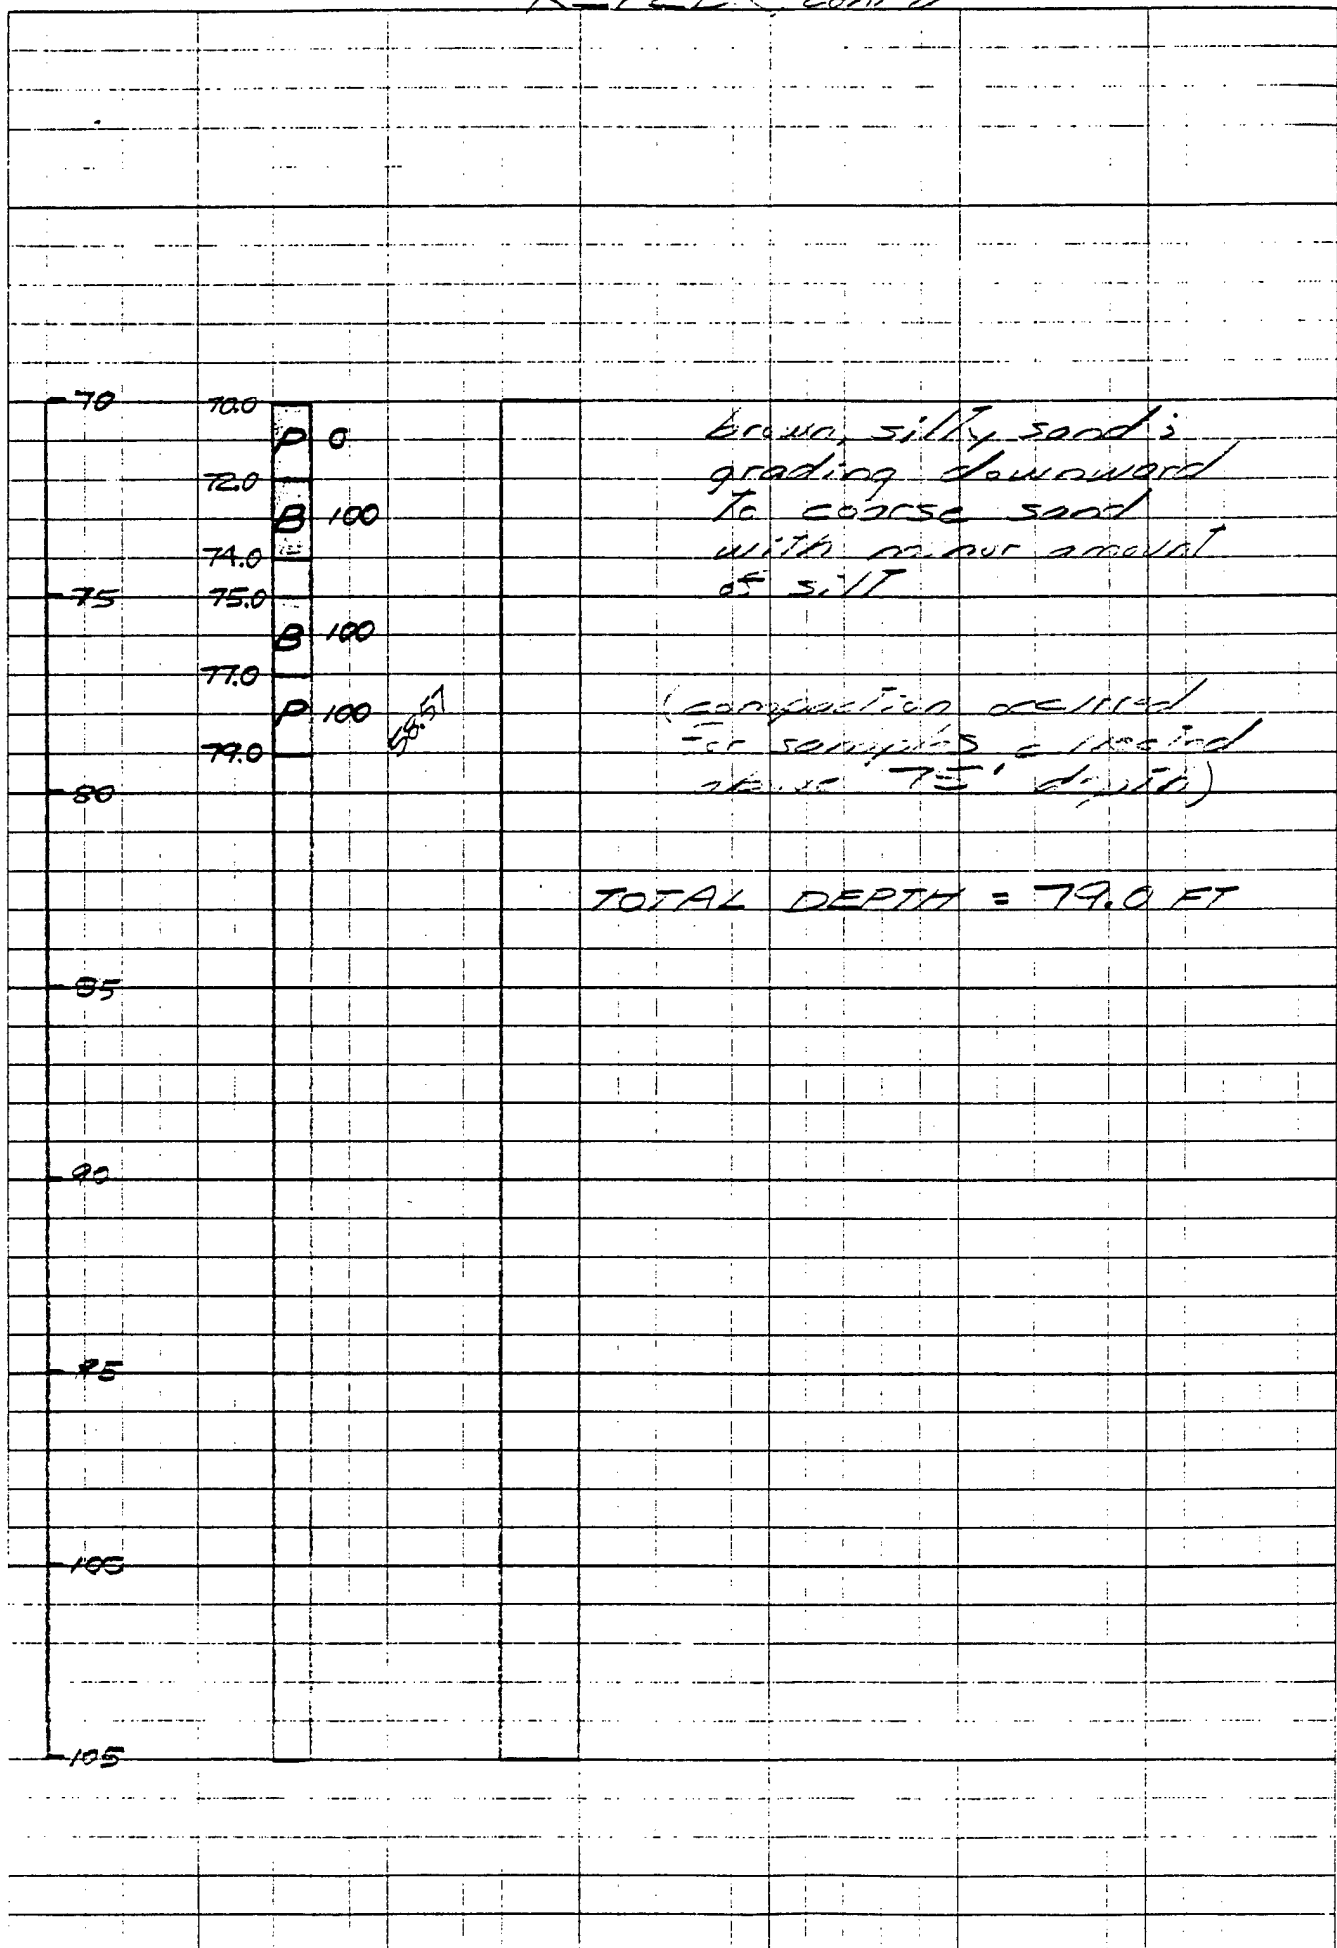 (cont'd)
70
70.0
P 0
72.0
B 100
74.0
75
75.0
B 100
77.0
P 100
58.57
79.0
80
85
90
95
100
105
brown, silty sand;
grading downward
To coarse sand
with minor amount
of silT
(compaction occurred
for samples collected
above 75' depth)
TOTAL DEPTH = 79.0 FT